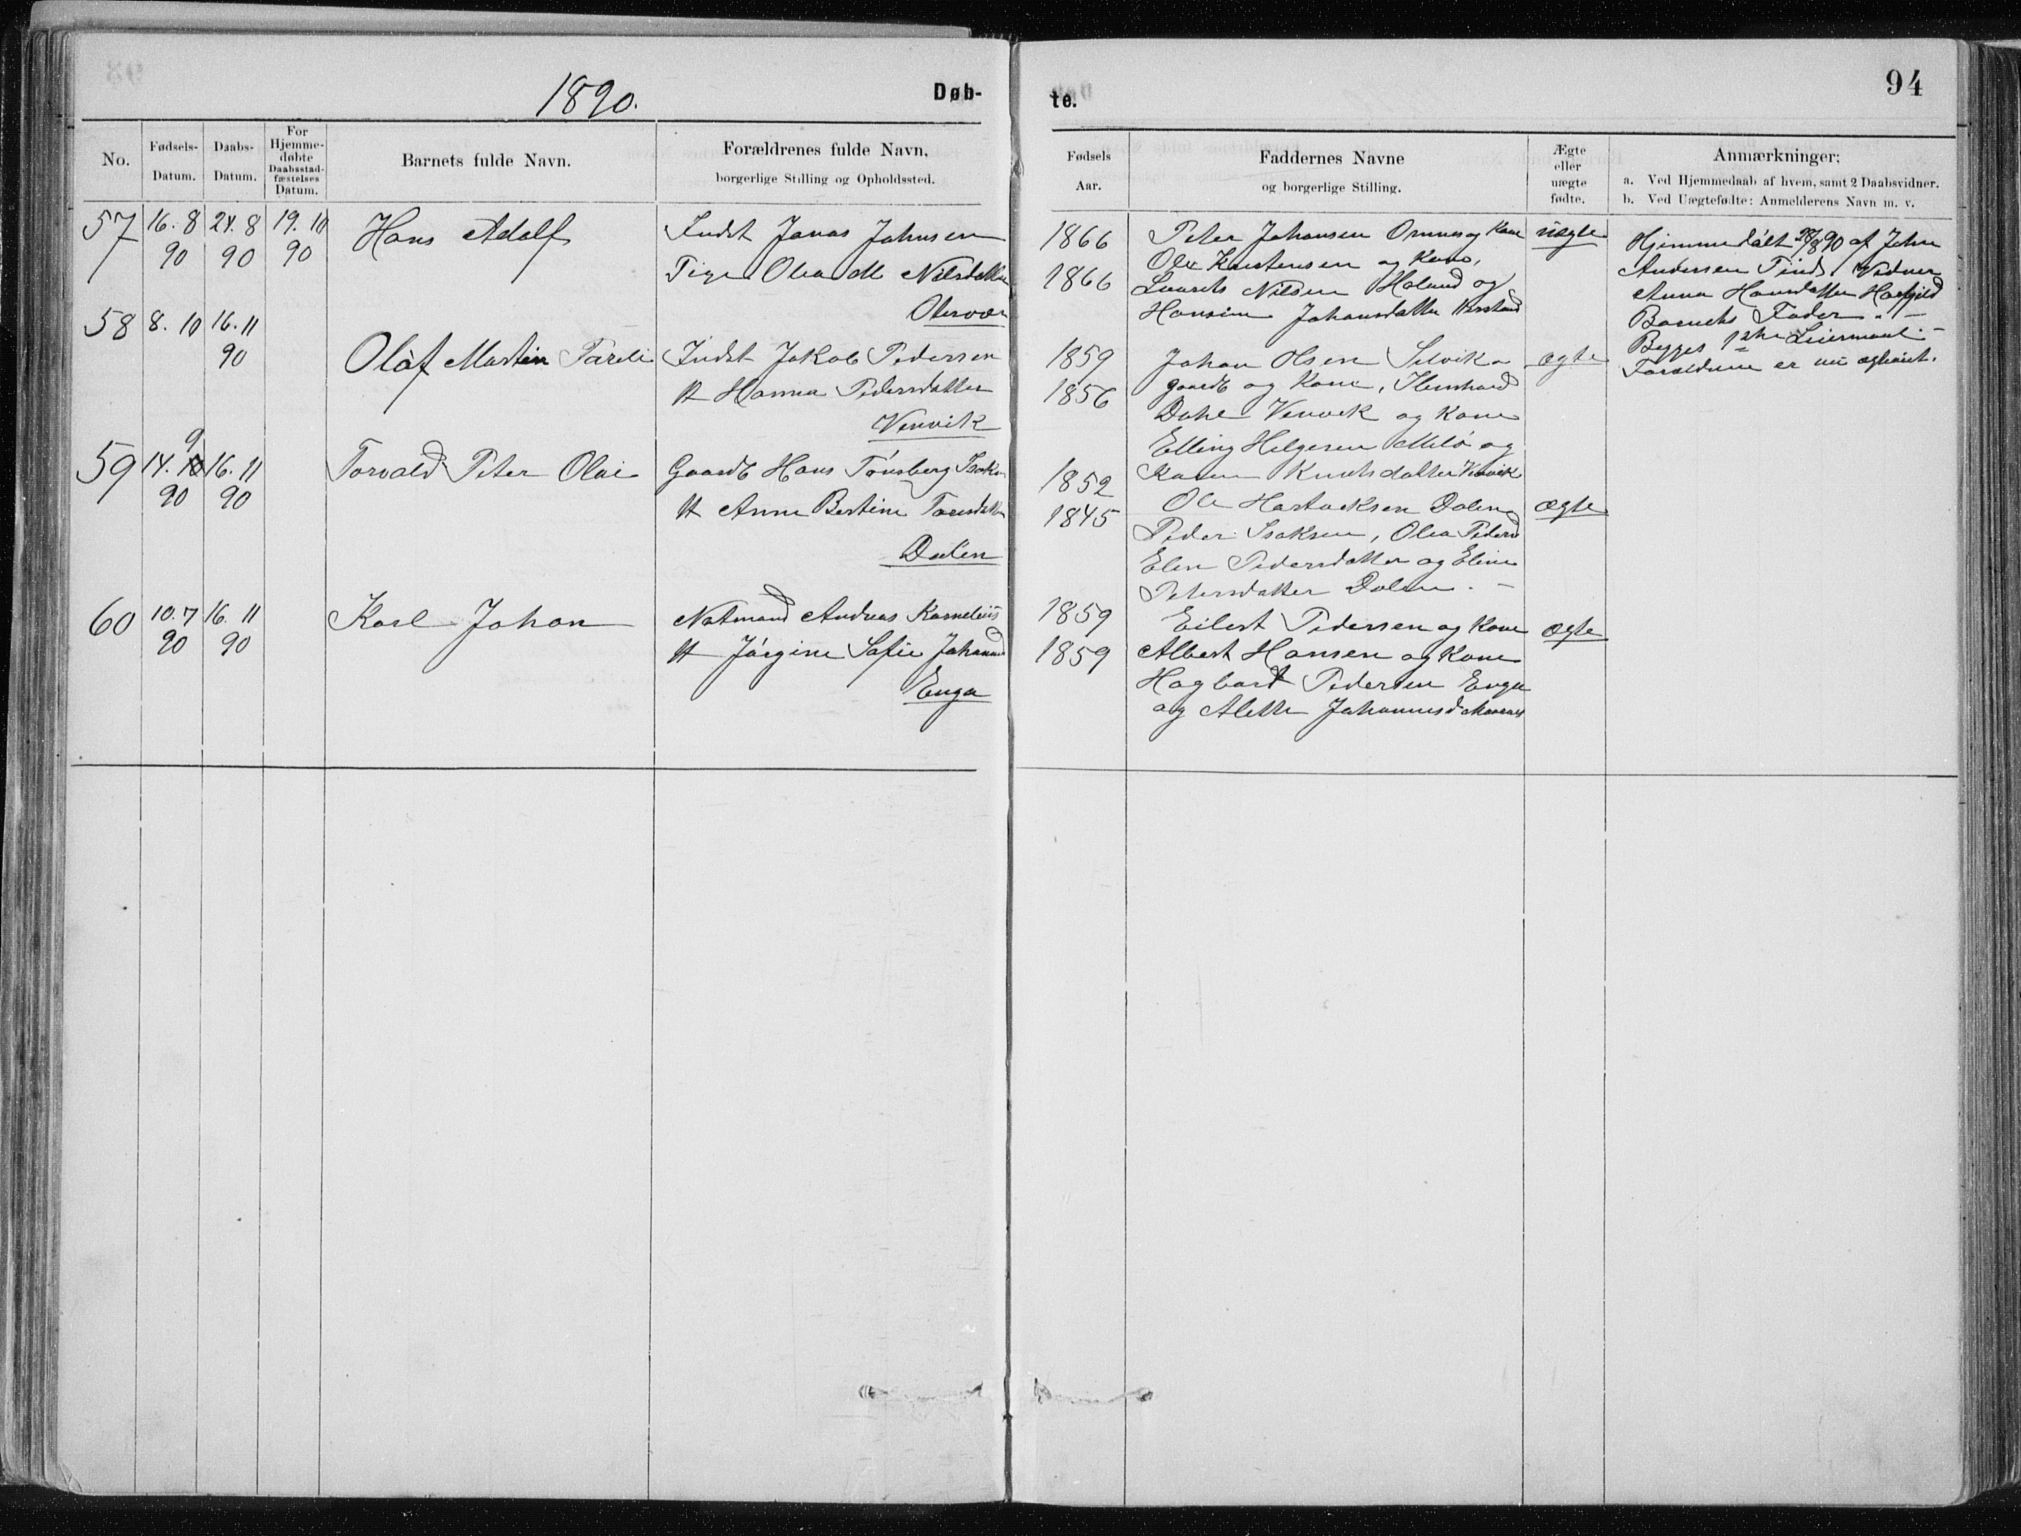 1890.
Døb-
No.
Fødsels-
Datum.
Daabs-
Datum.
For
Hjemme-
døbte
Daabsstad-
fæstelses
Datum.
Barnets fulde Navn.
Forældrenes fulde Navn,
borgerlige Stilling og Opholdssted.
57
16. 8
90
24. 8
90
19. 10
90
Hans Adolf
Indst Jonas Johnsen
Pige Olea M Nilsdatter
58
8. 10
16. 11
90
Olaf Martin
Indst Jakob Pedersen
H Hanna Pedersdatter
Venvik
59
9
14. 10
90
16. 11
90
Torvald Peter Olai
Gaardb Hans Tønsberg Isaks
H Anne Bertine
Dalen
60
10. 7
90
16. 11
90
Karl Johan
Notmand Andreas Kornelius
H Jørgine Sofie Johannes
Enga
94
te.
Fødsels
Aar.
Faddernes Navne
og borgerlige Stilling.
Ægte
eller
uægte
fødte.
Anmærkninger:
a. Ved Hjemmedaab af hvem, samt 2 Daabsvidner.
b. Ved Uægtefødte: Anmelderens Navn m. v.
1866
1866
Peter Johansen Ornes og Kone
Ole Kristensen og Kone,
Laurits Nilsen Høland og
Hansine Johansdatter
uægte
Hjemmedøbt 28/8 90 af John
Andersen
Anna Hansdatter
Barnets Fader. —
Begges 1ste Leiermaal. —
Forældrene er nu ægteviet.
1859
1856
Johan Olsen Selvik
gaardb og Kone,
Dahl Venvik og Kone
Elling Helgesen Milø og
Karen Knutsdatter Venvik
ægte
1852
1845
Ole Hartviksen Dalen
Peder Isaksen, Olea Peders
Elen Pedersdatter og Eline
Petersdatter Dalen. —
ægte
1859
1859
Eilert Pedersen og Kone
Albert Hansen og Kone
Hagbart Pedersen Enga
og Alette Johannesd
ægte